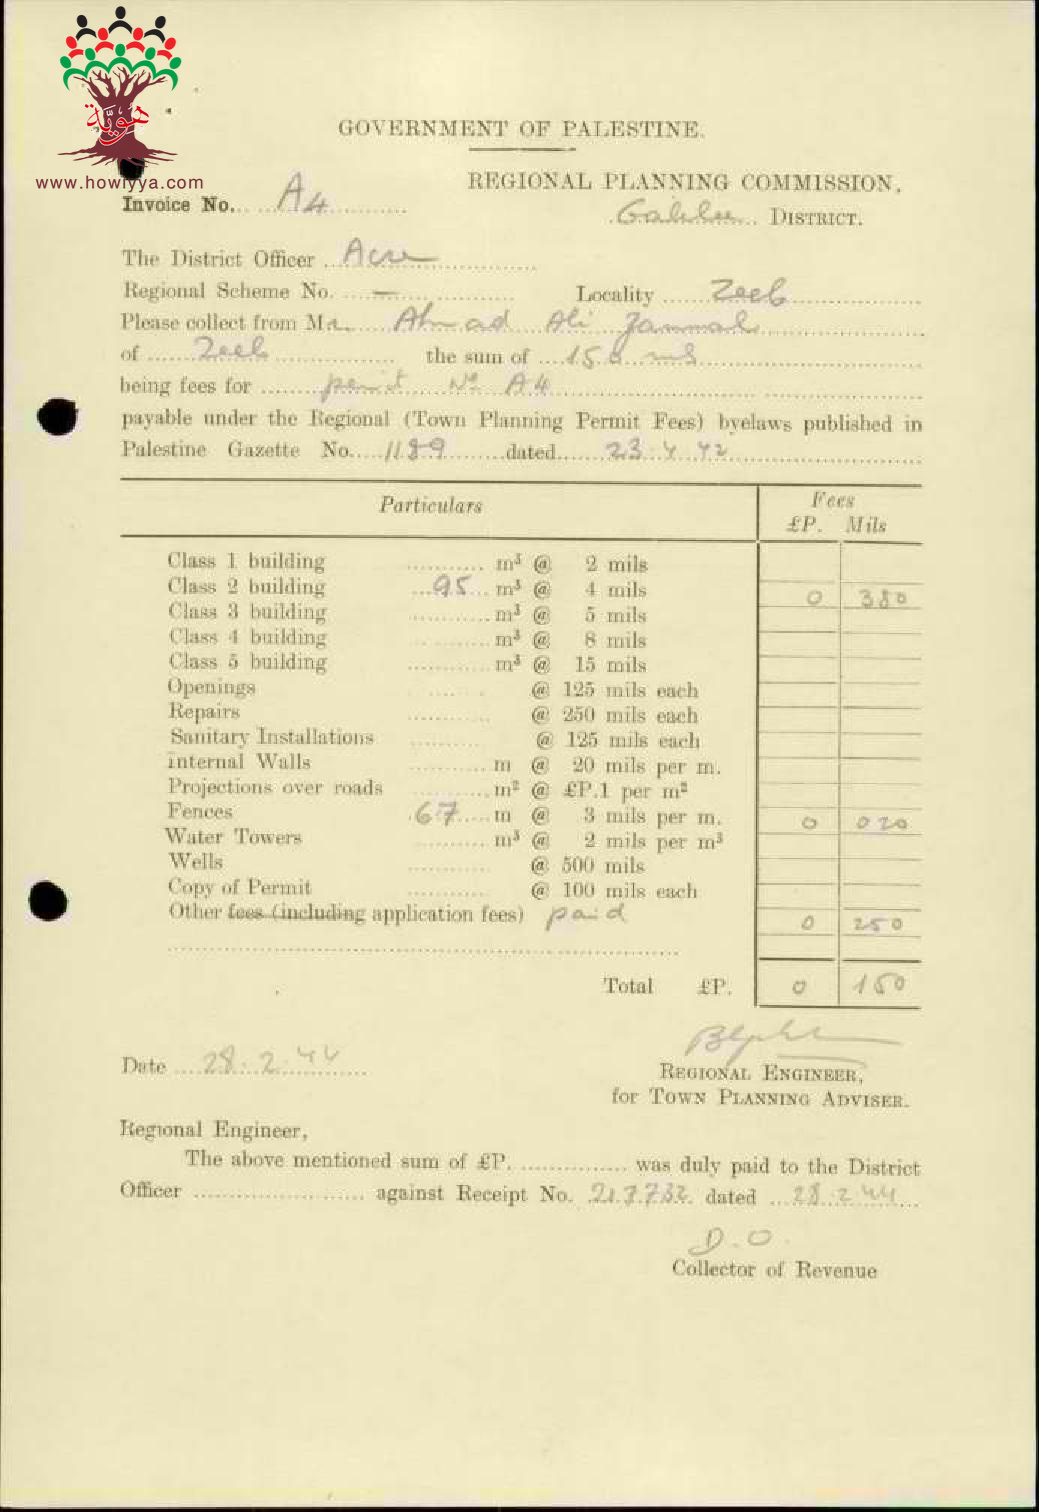 هويّة
www.howiyya.com
GOVERNMENT OF PALESTINE.
REGIONAL PLANNING COMMISSION,
Invoice No. A4
Galilee DISTRICT.
The District Officer Acre
Regional Scheme No. — Locality Zeeb
Please collect from Mr. Ahmad Ali Jammal
of Zeeb the sum of 150 mls
being fees for permit No A4
payable under the Regional (Town Planning Permit Fees) byelaws published in
Palestine Gazette No. 1189 dated 23.4.42
Particulars Fees
£P. Mils
Class 1 building m³ @ 2 mils
Class 2 building 95 m³ @ 4 mils 0 380
Class 3 building m³ @ 5 mils
Class 4 building m³ @ 8 mils
Class 5 building m³ @ 15 mils
Openings @ 125 mils each
Repairs @ 250 mils each
Sanitary Installations @ 125 mils each
Internal Walls m @ 20 mils per m.
Projections over roads m² @ £P.1 per m²
Fences 6.7 m @ 3 mils per m. 0 020
Water Towers m³ @ 2 mils per m³
Wells @ 500 mils
Copy of Permit @ 100 mils each
Other fees (including application fees) paid 0 250
Total £P. 0 150
Date 28.2.44
REGIONAL ENGINEER,
for TOWN PLANNING ADVISER.
Regional Engineer,
The above mentioned sum of £P. was duly paid to the District
Officer against Receipt No. 217732 dated 28.2.44
D.O.
Collector of Revenue